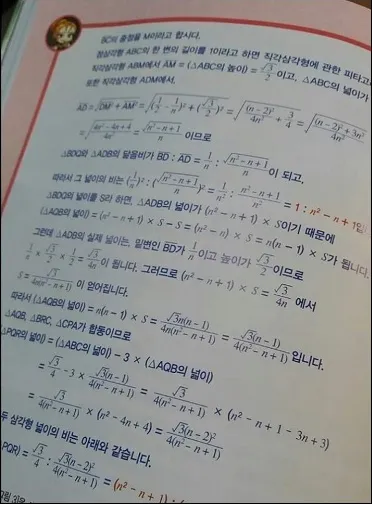 BC의 중점을 M이라고 합시다.
정삼각형 ABC의 한 변의 길이를 1이라고 하면 직각삼각형에 관한 피타고
직각삼각형 ABM에서 AM = (△ABC의 높이) = √3/2 이고, △ABC의 넓이가
또한 직각삼각형 ADM에서,
AD = √(DM² + AM²) = √((1/2 - 1/n)² + (√3/2)²) = √((n-2)²/4n² + 3/4) = √((n-2)² + 3n²/4n²
= √((4n² - 4n + 4)/4n²) = √(n² - n + 1)/n 이므로
△BDQ와 △ADB의 닮음비가 BD : AD = 1/n : √(n² - n + 1)/n 이 되고,
따라서 그 넓이의 비는 (1/n)² : (√(n² - n + 1)/n)² = 1/n² : (n² - n + 1)/n² = 1 : n² - n + 1입
△BDQ의 넓이를 S라 하면, △ADB의 넓이가 (n² - n + 1) × S이기 때문에
(△AQB의 넓이) = (n² - n + 1) × S - S = (n² - n) × S = n(n - 1) × S가 됩니다.
그런데 △ADB의 실제 넓이는, 밑변인 BD가 1/n 이고 높이가 √3/2 이므로
1/n × √3/2 × 1/2 = √3/4n 이 됩니다. 그러므로 (n² - n + 1) × S = √3/4n 에서
S = √3/4n(n² - n + 1) 이 얻어집니다.
따라서 (△AQB의 넓이) = n(n - 1) × S = √3n(n - 1)/4n(n² - n + 1) = √3(n - 1)/4(n² - n + 1) 입니다.
△AQB, △BRC, △CPA가 합동이므로
(△PQR의 넓이) = (△ABC의 넓이) - 3 × (△AQB의 넓이)
= √3/4 - 3 × √3(n - 1)/4(n² - n + 1) = √3/4(n² - n + 1) × (n² - n + 1 - 3n + 3)
√3/4(n² - n + 1) × (n² - 4n + 4) = √3(n - 2)²/4(n² - n + 1)
두 삼각형 넓이의 비는 아래와 같습니다.
PQR) = √3/4 : √3(n - 2)²/4(n² - n + 1) = (n² - n + 1) :